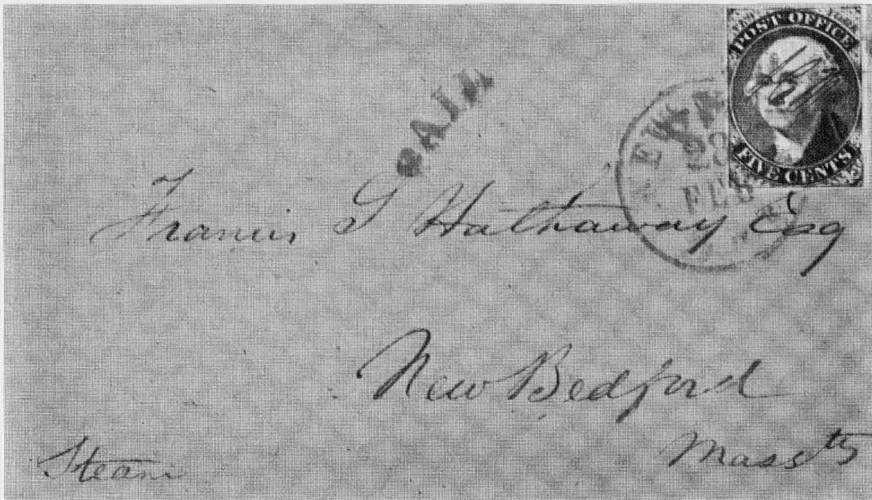 POST OFFICE
FIVE CENTS
PAID
28
FEB
Francis S Hathaway Esq
New Bedford
Massts
Steam